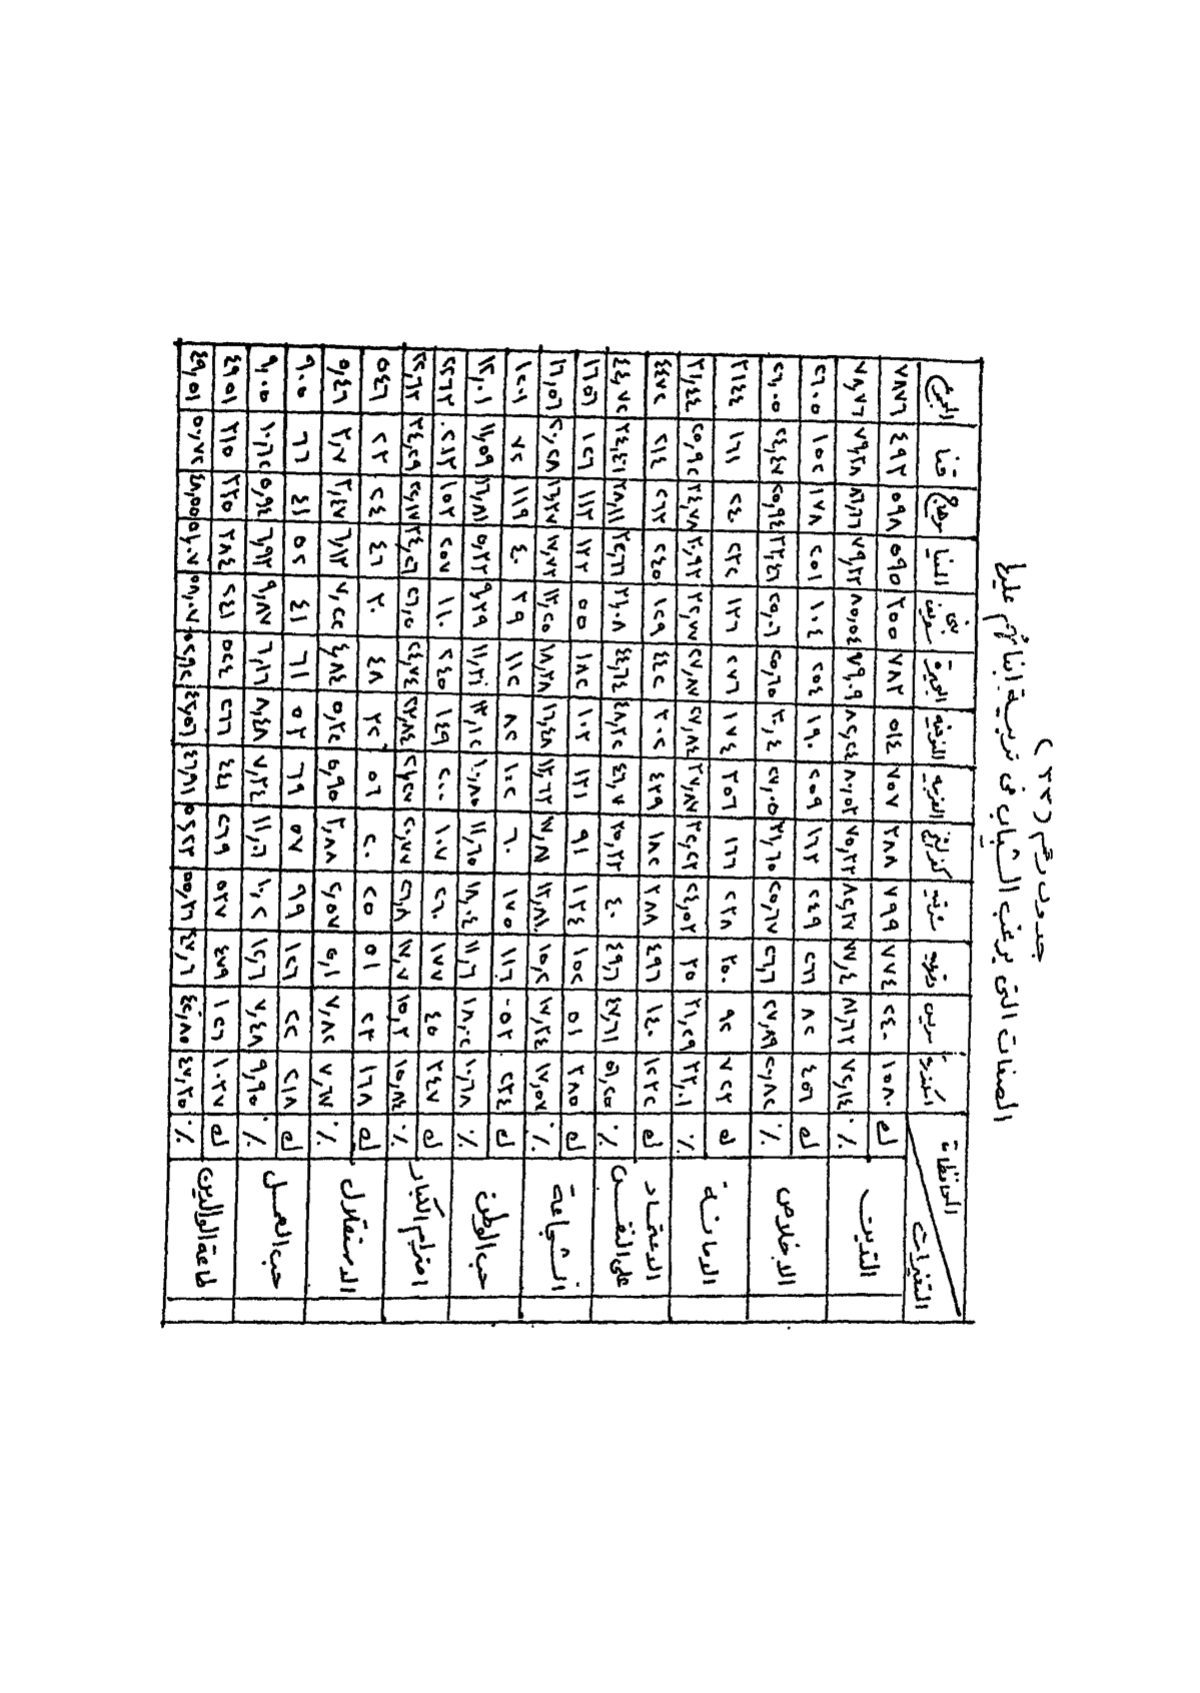 جدول رقم (٣٣)
الصفات التى يرغب الشباب فى تربية ابنائهم عليها
المحافظة المتغيرات اسكندرية دقهلية شرقية كفر الشيخ الغربيه المنوفيه البحيرة بنى سويف المنيا سوهاج قنا المجموع
التدين ك ١٥٨٠ ٢٤٠ ٧٧٤ ٧٩٩ ٣٨٨ ٧٥٧ ٥١٤ ٧٨٣ ٣٥٥ ٥٩٥ ٥٩٨ ٤٩٣ ٧٨٧٦
٪ ٧٢,١٤ ٨١,٦٣ ٧٧,٤ ٨٢,٣٧ ٧٥,٣٤ ٨٠,٥٣ ٨٢,٢٤ ٧٩,٠٩ ٨٥,٥٤ ٧٩,٣٣ ٨٦,٦٦ ٧٩,٣٨ ٧٨,٧٦
الاخلاص ك ٤٥٦ ٨٢ ٢٦٦ ٢٤٩ ١٦٣ ٢٥٩ ١٩٠ ٢٥٤ ١٠٤ ٢٥١ ١٧٨ ١٥٢ ٢٦٠٥
٪ ٢٠,٨٢ ٢٧,٨٩ ٢٦,٦ ٢٥,٦٧ ٣١,٦٥ ٢٧,٠٥ ٣٠,٤ ٢٥,٦٥ ٢٥,٠٦ ٣٣,٤٦ ٢٥,٩٤ ٢٤,٤٧ ٢٦,٠٥
الامانة ك ٧٢٣ ٩٢ ٣٥٠ ٢٣٨ ١٦٦ ٣٥٦ ١٧٤ ٢٧٦ ١٣٦ ٢٣٢ ٢٤٠ ١٦١ ٣١٤٤
٪ ٣٣,٠١ ٣١,٢٩ ٣٥ ٢٤,٥٣ ٣٢,٢٣ ٣٧,٨٧ ٢٧,٨٤ ٢٧,٨٧ ٣٢,٧٧ ٣٠,٩٣ ٣٤,٧٨ ٢٥,٩٢ ٣١,٤٤
الاعتماد على النفس ك ١٢٣٢ ١٤٠ ٤٩٦ ٣٨٨ ١٨٢ ٤٣٩ ٣٠٢ ٤٤٢ ١٢٩ ٢٤٥ ٢٦٣ ٢١٤ ٤٤٧٢
٪ ٥٦,٢٥ ٤٧,٦١ ٤٩,٦ ٤٠ ٣٥,٣٣ ٤٦,٧ ٤٨,٣٢ ٤٤,٦٤ ٣١,٠٨ ٣٢,٦٦ ٣٨,١١ ٣٤,٤٦ ٤٤,٧٢
الشجاعة ك ٣٨٥ ٥١ ١٥٢ ١٣٤ ٩١ ١٣١ ١٠٣ ١٨٢ ٥٥ ١٣٣ ١١٣ ١٢٦ ١٦٥٦
٪ ١٧,٥٧ ١٧,٣٤ ١٥,٢ ١٣,٨١ ١٧,٨ ١٣,٦٣ ١٦,٤٨ ١٨,٣٨ ١٣,٢٥ ١٧,٧٣ ١٦,٣٧ ٢٠,٢٨ ١٦,٥٦
حب الوطن ك ٢٣٤ ٥٣ ١١٦ ١٧٥ ٦٠ ١٠٢ ٨٢ ١١٢ ٣٩ ٤٠ ١١٩ ٧٢ ١٢٠١
٪ ١٠,٦٨ ١٨,٠٢ ١١,٦ ١٨,٠٤ ١١,٦٥ ١٠,٨٥ ١٣,١٢ ١١,٣١ ٩,٣٩ ٥,٣٣ ١٦,٨١ ١١,٥٩ ١٢,٠١
احترام الكبار ك ٣٤٧ ٤٥ ١٧٧ ٢٦٠ ١٠٧ ٢٠٠ ١٤٩ ٢٤٥ ١١٠ ٢٥٧ ١٥٣ ٢١٣ ٢٢٦٣
٪ ١٥,٨٤ ١٥,٣ ١٧,٧ ٢٦,٨ ٢٠,٧٧ ٢١,٢٧ ٢٣,٨٤ ٢٤,٧٤ ٢٦,٥ ٣٤,٢٦ ٢٢,١٧ ٣٤,٢٩ ٢٢,٦٣
الاستقلال ك ١٦٨ ٢٣ ٥١ ٢٥ ٢٠ ٥٦ ٣٢ ٤٨ ٣٠ ٤٦ ٢٤ ٢٣ ٥٤٦
٪ ٧,٦٧ ٧,٨٢ ٥,١ ٢,٥٧ ٣,٨٨ ٥,٩٥ ٥,٢٤ ٤,٨٤ ٧,٢٢ ٦,١٣ ٣,٤٧ ٣,٧ ٥,٤٦
حب العمل ك ٢١٨ ٢٢ ١٢٦ ٩٩ ٥٧ ٦٩ ٥٣ ٦١ ٤١ ٥٢ ٤١ ٦٦ ٩٠٥
٪ ٩,٩٥ ٧,٤٨ ١٢,٦ ١٠,٢ ١١,٠٦ ٧,٣٤ ٨,٤٨ ٦,١٦ ٩,٨٧ ٦,٩٣ ٥,٩٤ ١٠,٦٢ ٩,٠٥
طاعة الوالدين ك ١٠٣٧ ١٢٦ ٤٧٩ ٥٣٧ ٢٦٩ ٤٤١ ٢٦٦ ٥٢٤ ٢٤١ ٣٨٤ ٣٣٥ ٣١٥ ٤٩٥١
٪ ٤٧,٣٥ ٤٢,٨٥ ٤٧,٦ ٥٥,٣٦ ٥٢,٢٣ ٤٦,٩١ ٤٢,٥٦ ٥٢,٩٢ ٥٨,٠٧ ٥١,٠٧ ٤٨,٥٥ ٥٠,٧٢ ٤٩,٥١